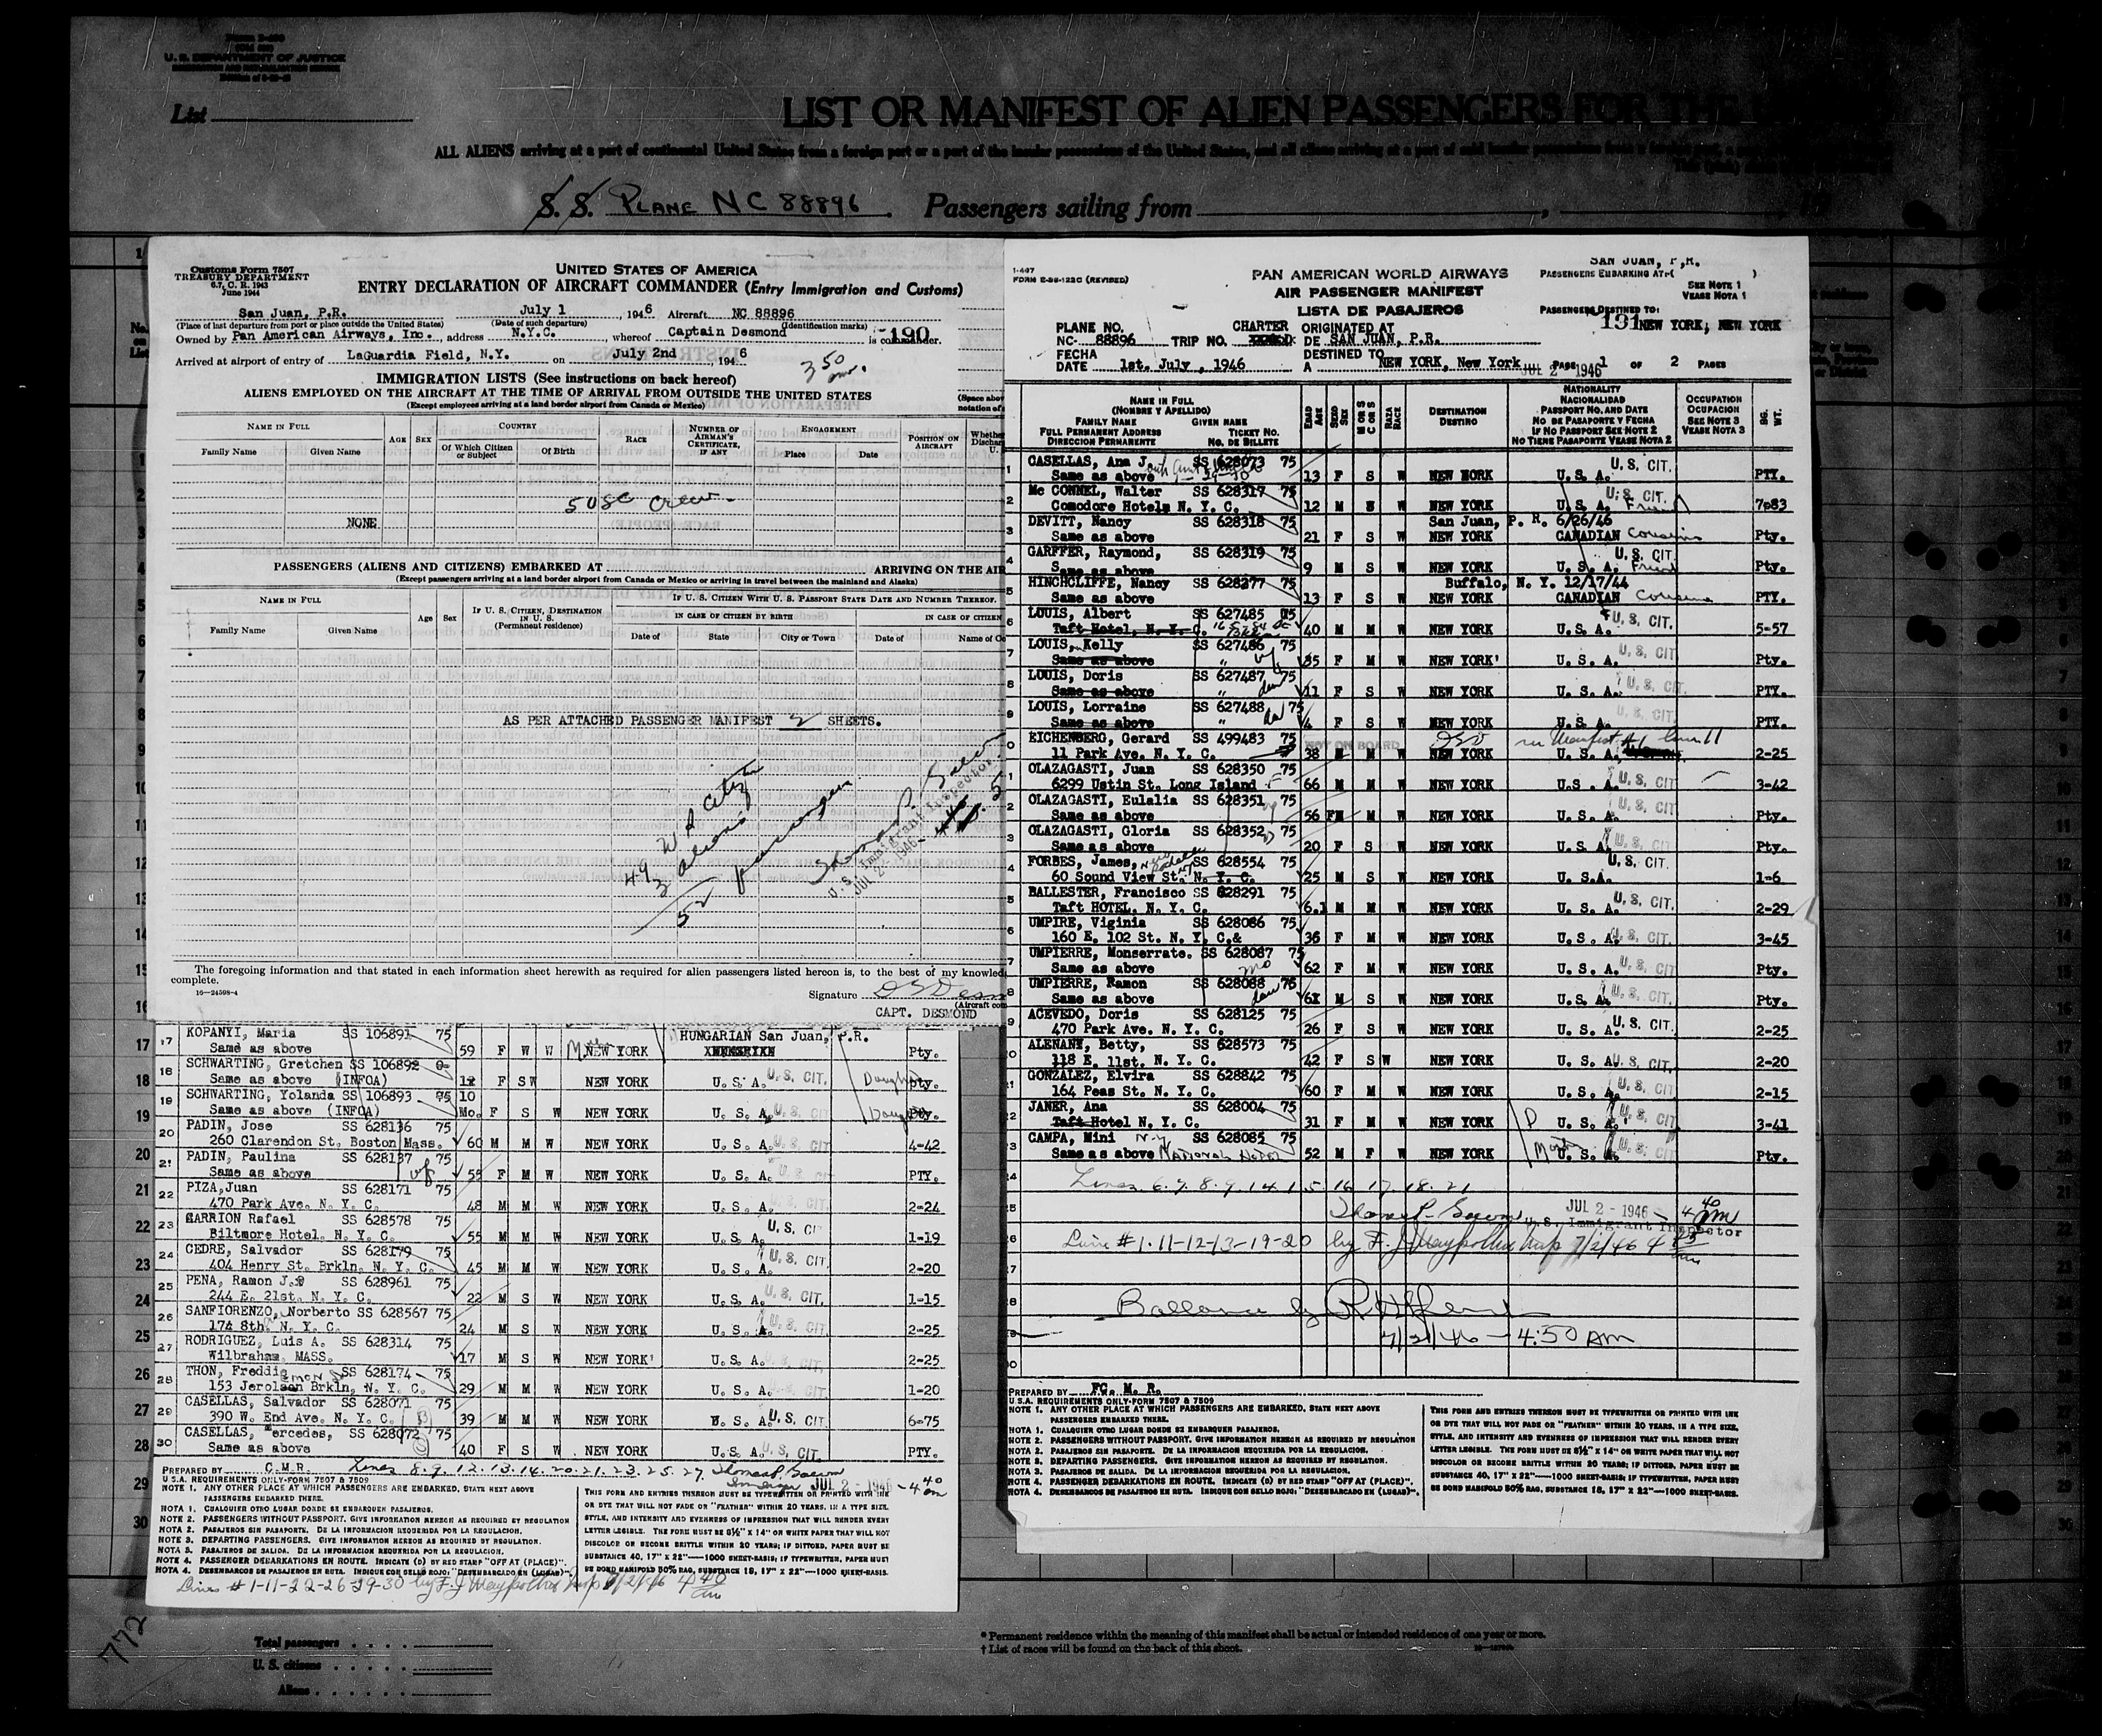 U. S. DEPARTMENT OF JUSTICE
List
LIST OR MANIFEST OF ALIEN PASSENGERS FOR THE
ALL ALIENS arriving at a port of continental United States from a foreign port or a port of the insular possessions of the United States, and all aliens arriving at a port of said insular possessions from a foreign port, a
S. S. PLANE NC 88896 . Passengers sailing from , 19
Customs Form 7507
TREASURY DEPARTMENT
6.7, C. R. 1943
June 1944
UNITED STATES OF AMERICA
ENTRY DECLARATION OF AIRCRAFT COMMANDER (Entry Immigration and Customs)
San Juan, P.R. July 1 , 1946 Aircraft NC 88896
(Place of last departure from port or place outside the United States) (Date of such departure) (Identification marks)
Owned by Pan American Airways, Inc. , address N.Y.C. , whereof Captain Desmond is commander.
190
Arrived at airport of entry of LaGuardia Field, N.Y. on July 2nd , 1946
3 50
IMMIGRATION LISTS (See instructions on back hereof)
ALIENS EMPLOYED ON THE AIRCRAFT AT THE TIME OF ARRIVAL FROM OUTSIDE THE UNITED STATES
(Except employees arriving at a land border airport from Canada or Mexico)
NAME IN FULL AGE SEX COUNTRY RACE NUMBER OF AIRMAN'S CERTIFICATE, IF ANY ENGAGEMENT POSITION ON AIRCRAFT
Family Name Given Name Of Which Citizen or Subject Of Birth Place Date
5 USC Crew
NONE
PASSENGERS (ALIENS AND CITIZENS) EMBARKED AT ARRIVING ON THE AIR
(Except passengers arriving at a land border airport from Canada or Mexico or arriving in travel between the mainland and Alaska)
NAME IN FULL Age Sex IF U. S. CITIZEN, DESTINATION IN U. S. (Permanent residence) IF U. S. CITIZEN WITH U. S. PASSPORT STATE DATE AND NUMBER THEREOF.
IN CASE OF CITIZEN BY BIRTH IN CASE OF CITIZEN
Family Name Given Name Date of State City or Town Date of Name of Co
AS PER ATTACHED PASSENGER MANIFEST 2 SHEETS.
49 U S City
3 aliens
52 passengers
U. S. Immigrant Inspector
JUL 2 - 1946
The foregoing information and that stated in each information sheet herewith as required for alien passengers listed hereon is, to the best of my knowled
complete.
16—24598-4
Signature
(Aircraft com
CAPT. DESMOND
17 KOPANYI, Maria SS 106891 75 HUNGARIAN San Juan, P.R.
Same as above 59 F W W NEW YORK Pty.
18 SCHWARTING, Gretchen SS 106892
Same as above (INFOA) F S W NEW YORK U. S. A. U. S. CIT. pty.
19 SCHWARTING, Yolanda SS 106893 75 10
Same as above (INFOA) Mo. F S W NEW YORK U. S. A. U. S. CIT Pty.
20 PADIN, Jose SS 628136 75
260 Clarendon St. Boston Mass. 60 M M W NEW YORK U. S. A. U. S. CIT 4-42
21 PADIN, Paulina SS 628137 75
Same as above wf 55 F M W NEW YORK U. S. A. U. S. CIT PTY.
22 PIZA, Juan SS 628171 75
470 Park Ave. N. Y. C. 48 M M W NEW YORK U. S. A. U. S. CIT. 2-24
23 CARRION Rafael SS 628578 75
Biltmore Hotel. N. Y. C. 55 M M W NEW YORK U. S. A. U. S. CIT 1-19
24 CEDRE, Salvador SS 628179 75
404 Henry St. Brkln. N. Y. C. 45 M M W NEW YORK U. S. A. U. S. CIT. 2-20
25 PENA, Ramon J. SS 628961 75
244 E. 21st. N. Y. C. 22 M S W NEW YORK U. S. A. U. S. CIT. 1-15
26 SANFIORENZO, Norberto SS 628567 75
174 8th. N. Y. C. 24 M S W NEW YORK U. S. A. U. S. CIT. 2-25
27 RODRIGUEZ, Luis A. SS 628314 75
Wilbraham, MASS. 17 M S W NEW YORK U. S. A. U. S. CIT. 2-25
28 THON, Freddie SS 628174 75
153 Jerolsen Brkln, N. Y. C. 29 M M W NEW YORK U. S. A. U. S. CIT. 1-20
29 CASELLAS, Salvador SS 628071 75
390 W. End Ave. N. Y. C. 39 M M W NEW YORK U. S. A. U. S. CIT. 6-75
30 CASELLAS, Mercedes, SS 628072 75
Same as above 40 F S W NEW YORK U. S. A. U. S. CIT. PTY.
PREPARED BY C.M.R. Lines 8. 9. 12. 13. 14. 20. 21. 23. 25. 27.
JUL 2 - 1946 - 4 40 am
U.S.A. REQUIREMENTS ONLY-FORM 7507 & 7509
NOTE 1. ANY OTHER PLACE AT WHICH PASSENGERS ARE EMBARKED, STATE NEXT ABOVE
PASSENGERS EMBARKED THERE.
NOTA 1. CUALQUIER OTRO LUGAR DONDE SE EMBARQUEN PASAJEROS.
NOTE 2. PASSENGERS WITHOUT PASSPORT. GIVE INFORMATION HEREON AS REQUIRED BY REGULATION
NOTA 2. PASAJEROS SIN PASAPORTE. DE LA INFORMACION REQUERIDA POR LA REGULACION.
NOTE 3. DEPARTING PASSENGERS. GIVE INFORMATION HEREON AS REQUIRED BY REGULATION.
NOTA 3. PASAJEROS DE SALIDA. DE LA INFORMACION REQUERIDA POR LA REGULACION.
NOTE 4. PASSENGER DEBARKATIONS EN ROUTE. INDICATE (D) BY RED STAMP "OFF AT (PLACE)".
NOTA 4. DESEMBARCOS DE PASAJEROS EN RUTA. INDIQUE CON SELLO ROJO: "DESEMBARCADO EN (LUGAR)".
THIS FORM AND ENTRIES THEREON MUST BE TYPEWRITTEN OR PRINTED WITH INK
OR DYE THAT WILL NOT FADE OR "FEATHER" WITHIN 20 YEARS, IN A TYPE SIZE,
STYLE, AND INTENSITY AND EVENNESS OF IMPRESSION THAT WILL RENDER EVERY
LETTER LEGIBLE. THE FORM MUST BE 8½" X 14" ON WHITE PAPER THAT WILL NOT
DISCOLOR OR BECOME BRITTLE WITHIN 20 YEARS; IF DITTOED, PAPER MUST BE
SUBSTANCE 40, 17" X 22"—1000 SHEET-BASIS; IF TYPEWRITTEN, PAPER MUST
BE BOND MANIFOLD 50% RAG, SUBSTANCE 18, 17" X 22"—1000 SHEET-BASIS.
Lines # 1-11-22-26-29-30 by F. J. 7/2/46 4 40 am
772
Total passengers
U. S. citizens
Aliens
1-407
FORM E-88-122C (REVISED)
PAN AMERICAN WORLD AIRWAYS
AIR PASSENGER MANIFEST
LISTA DE PASAJEROS
SAN JUAN, P.R.
PASSENGERS EMBARKING AT: ( )
SEE NOTE 1
VEASE NOTA 1
PASSENGERS DESTINED TO:
131 NEW YORK, NEW YORK
PLANE NO. CHARTER ORIGINATED AT
NC- 88896 TRIP NO. DE SAN JUAN, P.R.
FECHA DESTINED TO
DATE 1st. July , 1946 A NEW YORK, New York JUL 2 - 1946 PAGE 1 OF 2 PAGES
NAME IN FULL
(NOMBRE Y APELLIDO)
FAMILY NAME GIVEN NAME
FULL PERMANENT ADDRESS TICKET NO.
DIRECCION PERMANENTE NO. DE BILLETE
EDAD AGE SEXO SEX M OR S C OR S RAZA RACE DESTINATION DESTINO
NATIONALITY
NACIONALIDAD
PASSPORT NO. AND DATE
NO DE PASAPORTE Y FECHA
IF NO PASSPORT SEE NOTE 2
NO TIENE PASAPORTE VEASE NOTA 2
OCCUPATION
OCUPACION
SEE NOTE 3
VEASE NOTA 3
BG. WT.
1 CASELLAS, Ana J. SS 628073 75 U. S. CIT.
Same as above 13 F S W NEW YORK U. S. A. PTY.
2 Mc CONNEL, Walter SS 628317 75 U. S. CIT.
Comodore Hotels N. Y. C. 12 M S W NEW YORK U. S. A. Friend 7-83
3 DEVITT, Nancy SS 628318 75 San Juan, P. R. 6/26/46
Same as above 21 F S W NEW YORK CANADIAN Cousins Pty.
4 GARFFER, Raymond, SS 628319 75 U. S. CIT.
Same as above 9 M S W NEW YORK U. S. A. Friend Pty.
5 HINCHCLIFFE, Nancy SS 628277 75 Buffalo, N. Y. 12/17/44
Same as above 13 F S W NEW YORK CANADIAN Cousins PTY.
6 LOUIS, Albert SS 627485 75 U. S. CIT.
Taft Hotel, N. Y. C. 40 M M W NEW YORK U. S. A. 5-57
7 LOUIS, Kelly SS 627486 75 U. S. CIT
Same as above " wf 35 F M W NEW YORK U. S. A. Pty.
8 LOUIS, Doris SS 627487 75 U. S. CIT.
Same as above " dau 11 F S W NEW YORK U. S. A. PTY.
9 LOUIS, Lorraine SS 627488 75 U. S. CIT
Same as above " da 4 F S W NEW YORK U. S. A. PTY.
0 EICHENBERG, Gerard SS 499483 75 NOT ON BOARD on Manifest #1 line 11
11 Park Ave. N. Y. C. 38 M M W NEW YORK U. S. A. 2-25
1 OLAZAGASTI, Juan SS 628350 75
6299 Ustin St. Long Island 66 M M W NEW YORK U.S. A. U. S. CIT. 3-42
2 OLAZAGASTI, Eulalia SS 628351 75
Same as above 56 FM M W NEW YORK U. S. A. U. S. CIT. Pty.
3 OLAZAGASTI, Gloria SS 628352 75
Same as above 20 F S W NEW YORK U. S. A. U. S. CIT. Pty.
4 FORBES, James, SS 628554 75 U. S. CIT.
60 Sound View St. N. Y. C. 25 M S W NEW YORK U. S.A. 1-6
BALLESTER, Francisco SS 628291 75
Taft HOTEL. N. Y. C. 61 M M W NEW YORK U. S. A. U. S. CIT. 2-29
6 UMPIRE, Viginia SS 628086 75
160 E. 102 St. N. Y. C.& 36 F M W NEW YORK U. S. A. U. S. CIT. 3-45
7 UMPIERRE, Monserrate. SS 628087 75
Same as above mo 62 F M W NEW YORK U. S. A. U. S. CIT Pty.
8 UMPIERRE, Ramon SS 628088 75
Same as above 61 M S W NEW YORK U. S. A. U. S. CIT. Pty.
9 ACEVEDO, Doris SS 628125 75
470 Park Ave. N. Y. C. 26 F S W NEW YORK U. S. A. U. S. CIT. 2-25
0 ALENANY, Betty, SS 628573 75
118 E. 11st. N. Y. C. 42 F S W NEW YORK U. S. A. U. S. CIT. 2-20
1 GONZALEZ, Elvira SS 628842 75
164 Peas St. N. Y. C. 60 F M W NEW YORK U. S. A. U. S. CIT. 2-15
2 JANER, Ana SS 628004 75
Taft Hotel N. Y. C. 31 F M W NEW YORK U. S. A. U. S. CIT 3-41
3 CAMPA, Mini N.Y. SS 628085 75
Same as above NATIONAL HOTEL 52 M F W NEW YORK U. S. A. U. S. CIT Pty.
Lines 6. 7. 8. 9. 14. 15. 16. 17. 18. 21
JUL 2 - 1946 - 4 40 am
U. S. Immigrant Inspector
Line # 1-11-12-13-19-20 by F. J. 7/2/46 4
Ballance by
7/2/46 - 4:50 AM
PREPARED BY FC. M. R.
U.S.A. REQUIREMENTS ONLY-FORM 7507 & 7509
NOTE 1. ANY OTHER PLACE AT WHICH PASSENGERS ARE EMBARKED, STATE NEXT ABOVE
PASSENGERS EMBARKED THERE.
NOTA 1. CUALQUIER OTRO LUGAR DONDE SE EMBARQUEN PASAJEROS.
NOTE 2. PASSENGERS WITHOUT PASSPORT. GIVE INFORMATION HEREON AS REQUIRED BY REGULATION
NOTA 2. PASAJEROS SIN PASAPORTE. DE LA INFORMACION REQUERIDA POR LA REGULACION.
NOTE 3. DEPARTING PASSENGERS. GIVE INFORMATION HEREON AS REQUIRED BY REGULATION.
NOTA 3. PASAJEROS DE SALIDA. DE LA INFORMACION REQUERIDA POR LA REGULACION.
NOTE 4. PASSENGER DEBARKATIONS EN ROUTE. INDICATE (D) BY RED STAMP "OFF AT (PLACE)".
NOTA 4. DESEMBARCOS DE PASAJEROS EN RUTA. INDIQUE CON SELLO ROJO: "DESEMBARCADO EN (LUGAR)".
THIS FORM AND ENTRIES THEREON MUST BE TYPEWRITTEN OR PRINTED WITH INK
OR DYE THAT WILL NOT FADE OR "FEATHER" WITHIN 20 YEARS, IN A TYPE SIZE,
STYLE, AND INTENSITY AND EVENNESS OF IMPRESSION THAT WILL RENDER EVERY
LETTER LEGIBLE. THE FORM MUST BE 8½" X 14" ON WHITE PAPER THAT WILL NOT
DISCOLOR OR BECOME BRITTLE WITHIN 20 YEARS; IF DITTOED, PAPER MUST BE
SUBSTANCE 40, 17" X 22"—1000 SHEET-BASIS; IF TYPEWRITTEN, PAPER MUST
BE BOND MANIFOLD 50% RAG, SUBSTANCE 18, 17" X 22"—1000 SHEET-BASIS.
* Permanent residence within the meaning of this manifest shall be actual or intended residence of one year or more.
† List of races will be found on the back of this sheet.